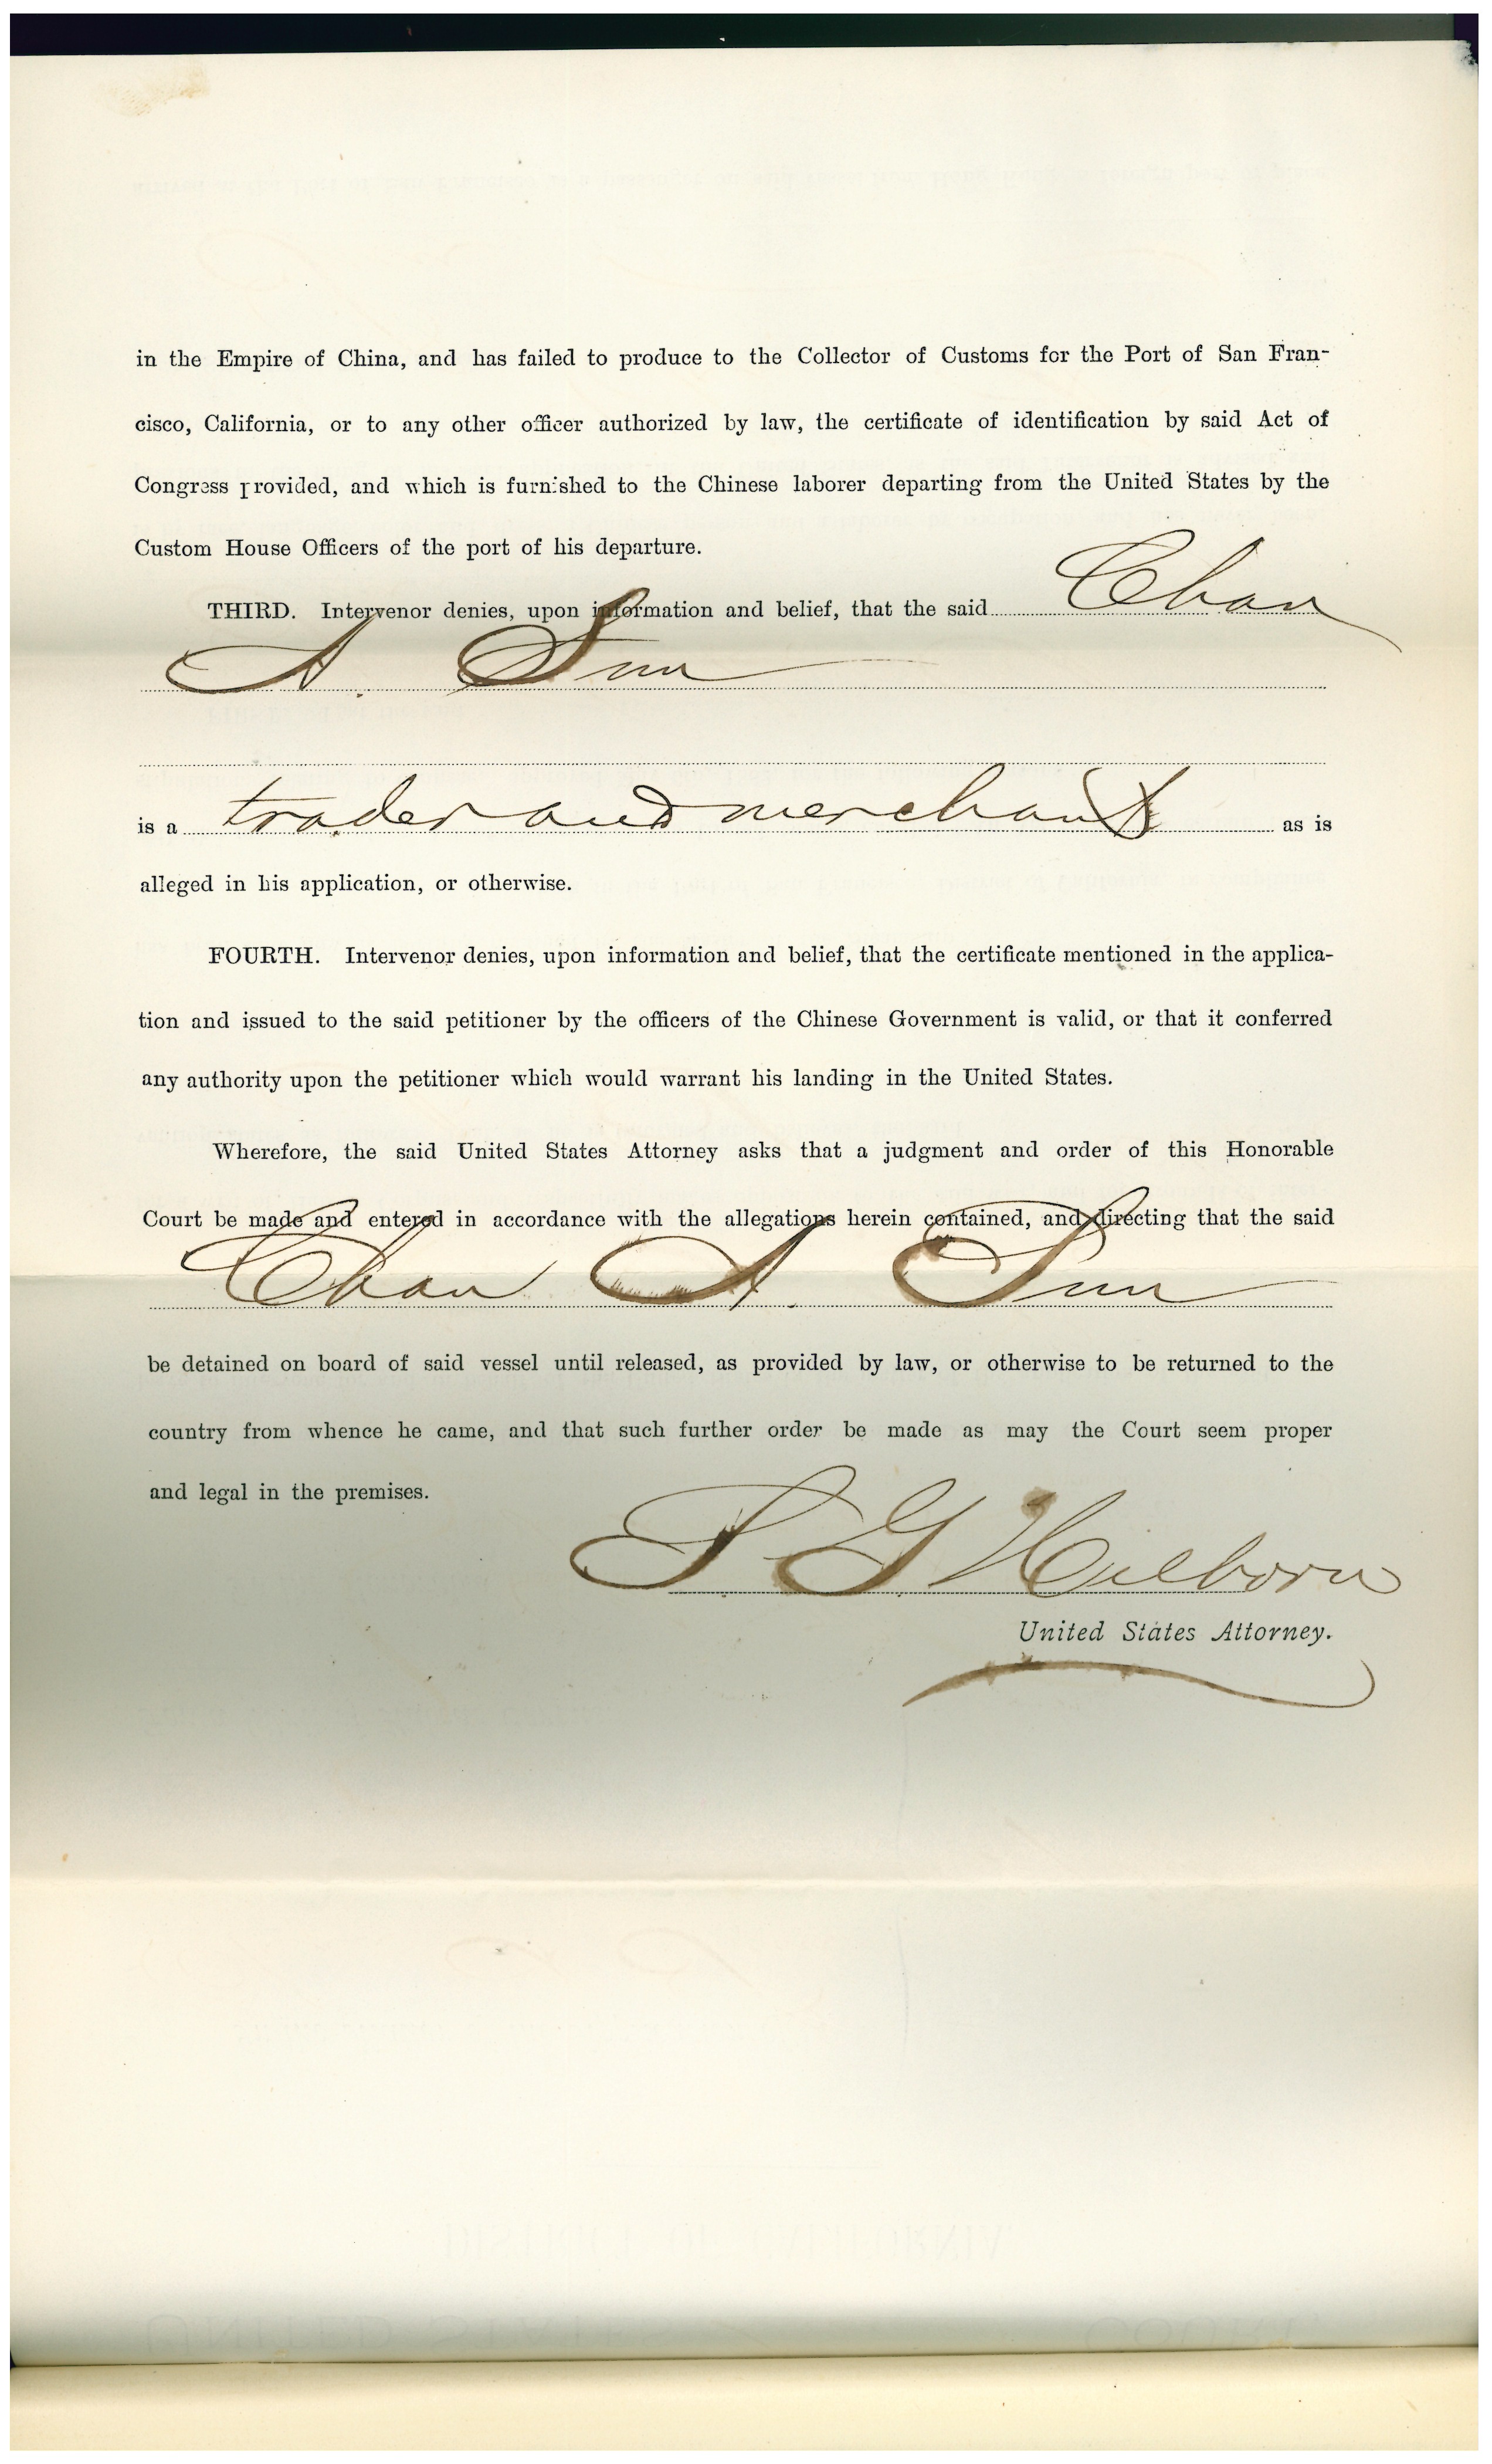 in the Empire of China, and has failed to produce to the Collector of Customs for the Port of San Fran-
cisco, California, or to any other officer authorized by law, the certificate of identification by said Act of
Congress provided, and which is furnished to the Chinese laborer departing from the United States by the
Custom House Officers of the port of his departure.
THIRD. Intervenor denies, upon information and belief, that the said Chan
A. Sun
is a trader and merchant as is
alleged in his application, or otherwise.
FOURTH. Intervenor denies, upon information and belief, that the certificate mentioned in the applica-
tion and issued to the said petitioner by the officers of the Chinese Government is valid, or that it conferred
any authority upon the petitioner which would warrant his landing in the United States.
Wherefore, the said United States Attorney asks that a judgment and order of this Honorable
Court be made and entered in accordance with the allegations herein contained, and directing that the said
Chan A. Sun
be detained on board of said vessel until released, as provided by law, or otherwise to be returned to the
country from whence he came, and that such further order be made as may the Court seem proper
and legal in the premises.
S G Hilborn
United States Attorney.